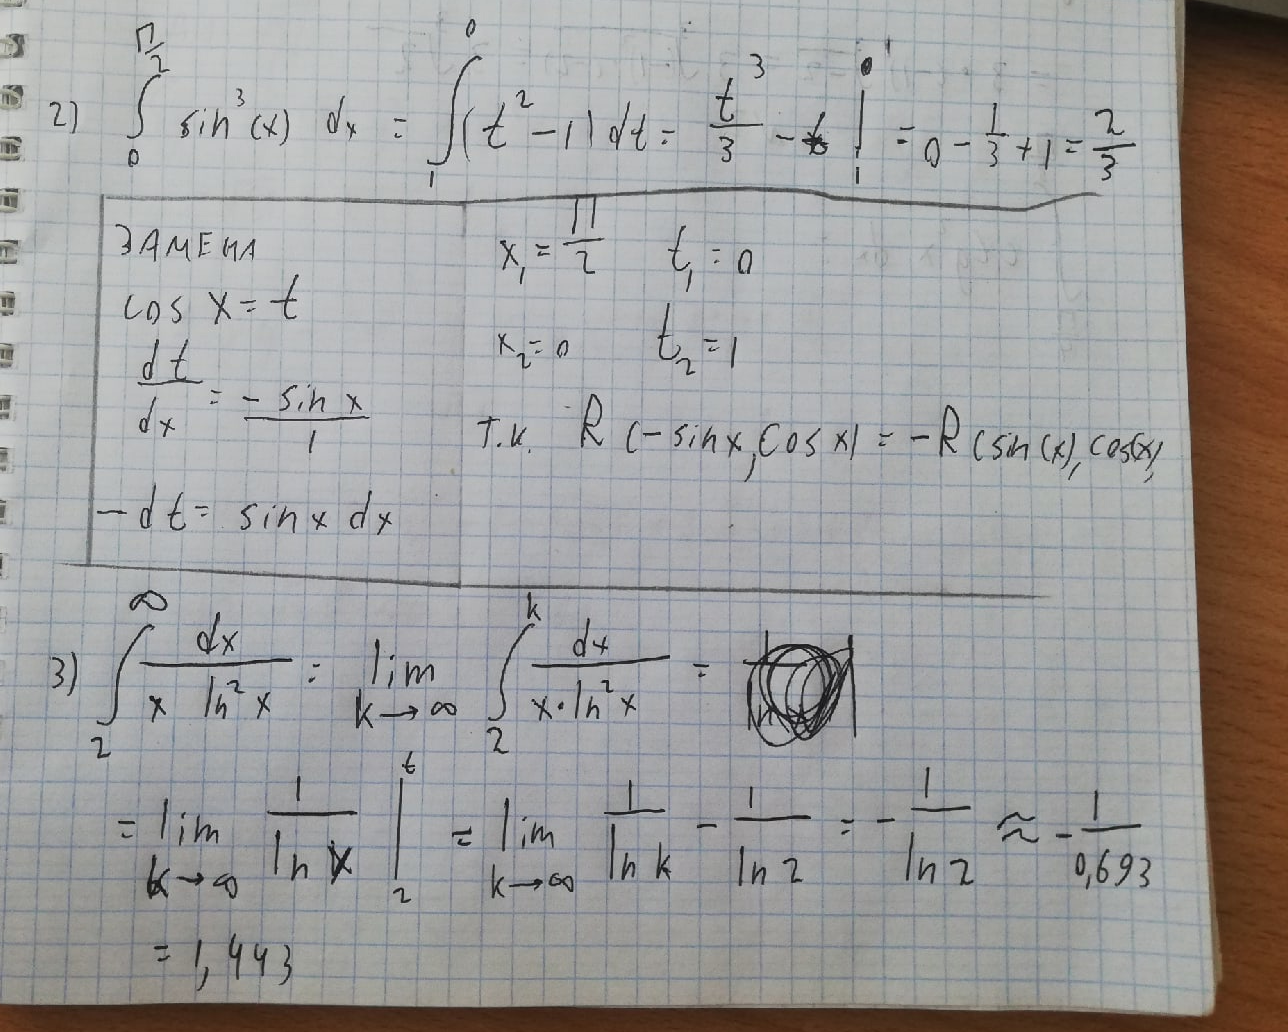 2) ∫₀^(π/2) sin³(x) dx = ∫₁⁰ (t² - 1) dt = t³/3 - t |₁⁰ = 0 - 1/3 + 1 = 2/3
ЗАМЕНА
cos x = t
dt/dx = - sin x/1
- dt = sin x dx
x₁ = π/2 t₁ = 0
x₂ = 0 t₂ = 1
Т.К. R (- sin x, cos x) = - R (sin (x), cos(x),
3) ∫₂^∞ dx/(x ln² x) = lim k→∞ ∫₂^k dx/(x · ln² x) =
= lim k→∞ 1/ln x |₂^t = lim k→∞ 1/ln k - 1/ln 2 = - 1/ln 2 ≈ - 1/0,693
= 1,443